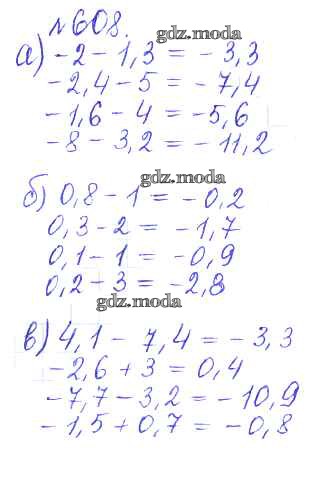 №608.
gdz.moda
а) -2 - 1,3 = -3,3
-2,4 - 5 = -7,4
-1,6 - 4 = -5,6
-8 - 3,2 = -11,2
gdz.moda
б) 0,8 - 1 = -0,2
0,3 - 2 = -1,7
0,1 - 1 = -0,9
0,2 - 3 = -2,8
gdz.moda
в) 4,1 - 7,4 = -3,3
-2,6 + 3 = 0,4
-7,7 - 3,2 = -10,9
-1,5 + 0,7 = -0,8